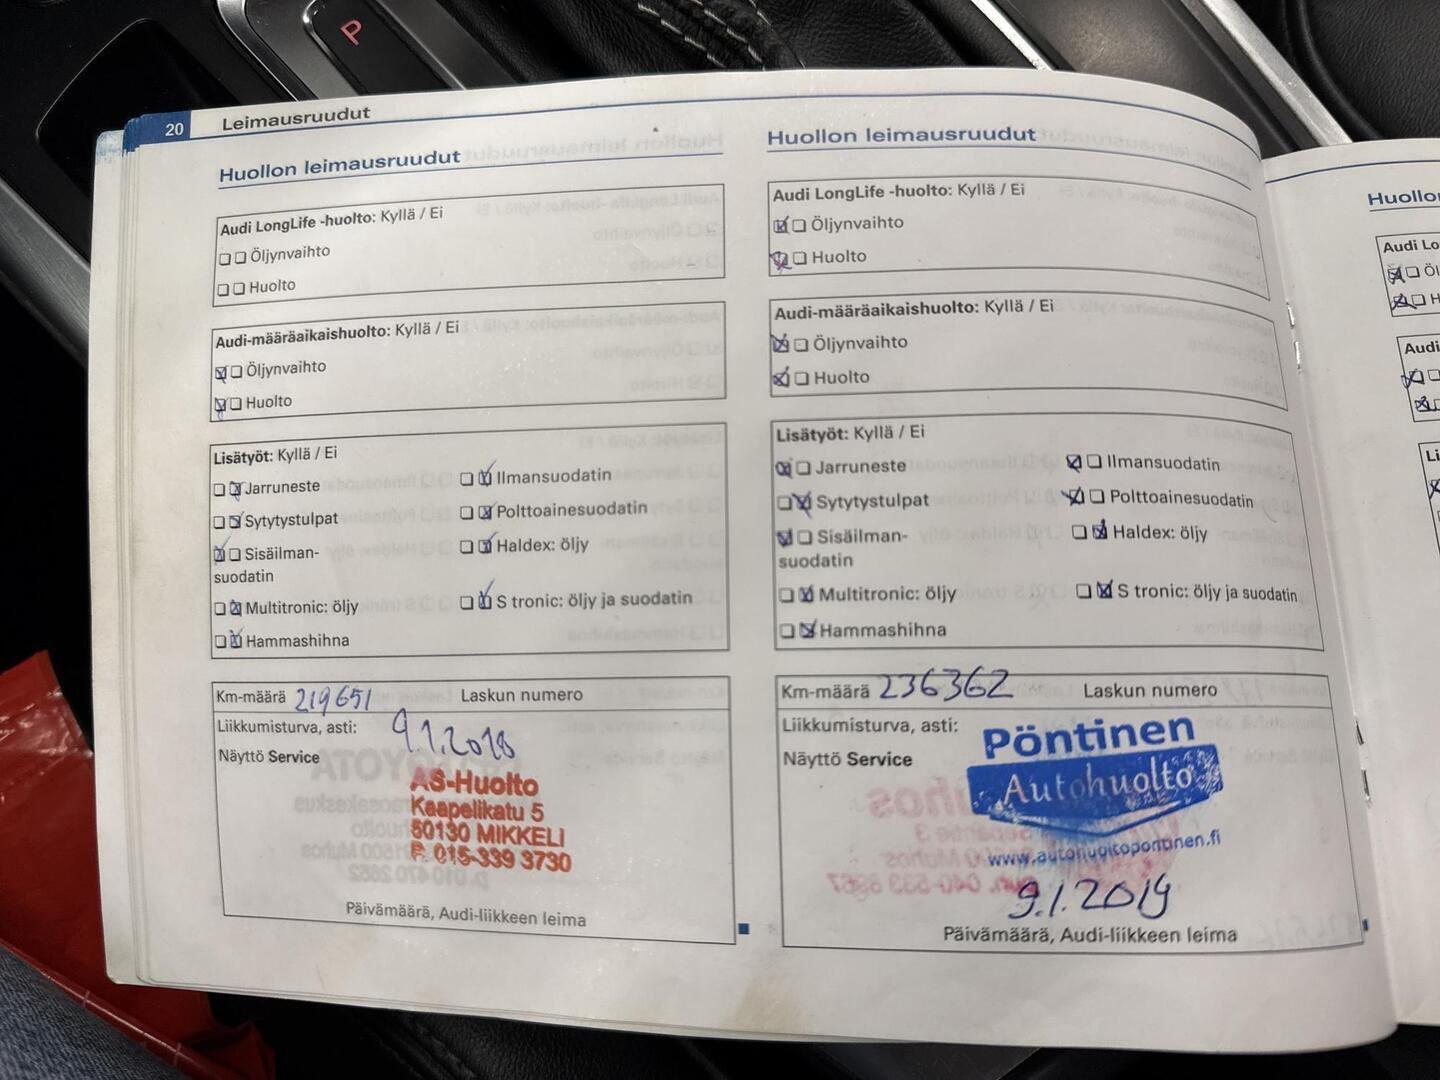 P
20 Leimausruudut
Huollon leimausruudut
Audi LongLife -huolto: Kyllä / Ei
Öljynvaihto
Huolto
Audi-määräaikaishuolto: Kyllä / Ei
Öljynvaihto
Huolto
Lisätyöt: Kyllä / Ei
Jarruneste
Ilmansuodatin
Sytytystulpat
Polttoainesuodatin
Sisäilman-
suodatin
Haldex: öljy
Multitronic: öljy
S tronic: öljy ja suodatin
Hammashihna
Km-määrä 219651 Laskun numero
Liikkumisturva, asti: 9.1.2018
Näyttö Service
AS-Huolto
Kaapelikatu 5
50130 MIKKELI
P. 015-339 3730
Päivämäärä, Audi-liikkeen leima
Huollon leimausruudut
Audi LongLife -huolto: Kyllä / Ei
Öljynvaihto
Huolto
Audi-määräaikaishuolto: Kyllä / Ei
Öljynvaihto
Huolto
Lisätyöt: Kyllä / Ei
Jarruneste
Ilmansuodatin
Sytytystulpat
Polttoainesuodatin
Sisäilman-
suodatin
Haldex: öljy
Multitronic: öljy
S tronic: öljy ja suodatin
Hammashihna
Km-määrä 236362 Laskun numero
Liikkumisturva, asti:
Näyttö Service
Pöntinen
Autohuolto
www.autohuoltopontinen.fi
9.1.2019
Päivämäärä, Audi-liikkeen leima
Huollo
Audi Lo
Öl
H
Audi
Li